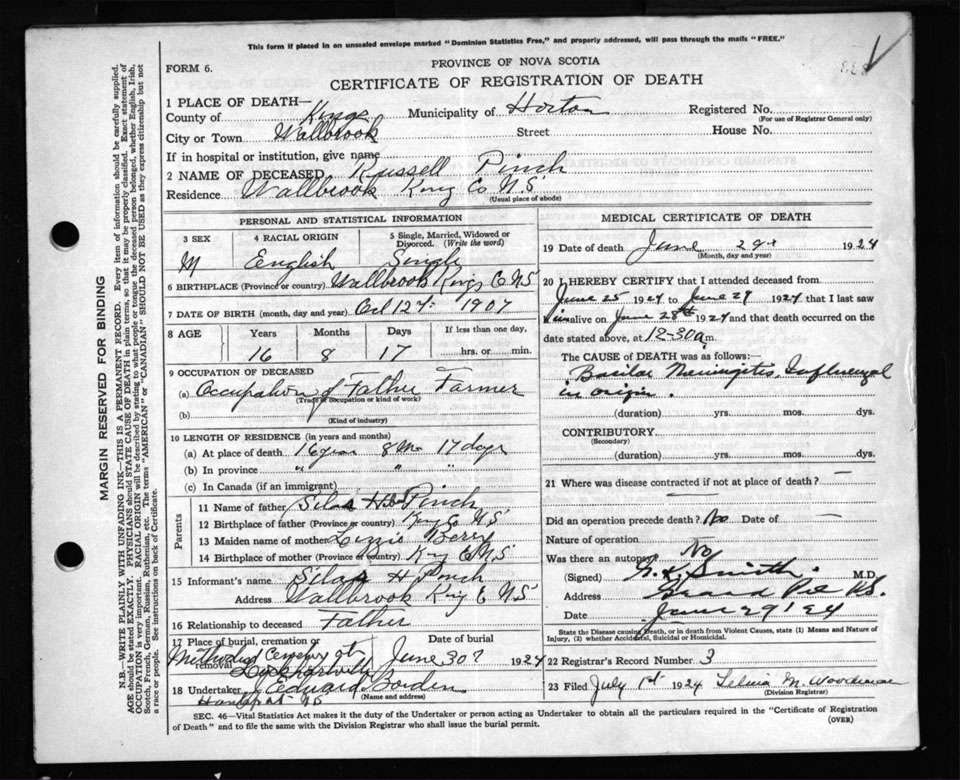 This form if placed in an unsealed envelope marked "Dominion Statistics Free," and properly addressed, will pass through the mails "FREE."
PROVINCE OF NOVA SCOTIA
FORM 6.
CERTIFICATE OF REGISTRATION OF DEATH
1 PLACE OF DEATH—
County of Kings Municipality of Horton Registered No.
(For use of Registrar General only)
City or Town Wallbrook Street House No.
If in hospital or institution, give name
2 NAME OF DECEASED Russell Pinch
Residence Wallbrook King Co N.S
(Usual place of abode)
PERSONAL AND STATISTICAL INFORMATION
3 SEX 4 RACIAL ORIGIN 5 Single, Married, Widowed or Divorced. (Write the word)
M English Single
6 BIRTHPLACE (Province or country) Wallbrook Kings C NS
7 DATE OF BIRTH (month, day and year) Oct 12th 1907
8 AGE Years Months Days If less than one day,
16 8 17 hrs. or min.
9 OCCUPATION OF DECEASED
(a) Occupation of Father Farmer
(Trade, occupation or kind of work)
(b)
(Kind of industry)
10 LENGTH OF RESIDENCE (in years and months)
(a) At place of death 16 years 8 Mo 17 days
(b) In province " " "
(c) In Canada (if an immigrant)
Parents
11 Name of father Silas H Pinch
12 Birthplace of father (Province or country) King Co NS
13 Maiden name of mother Lizzie Berry
14 Birthplace of mother (Province or country) King C NS
15 Informant's name Silas H Pinch
Address Wallbrook King C NS
16 Relationship to deceased Father
17 Place of burial, cremation or removal Date of burial
Methodist Cemetery at June 30 1924
18 Undertaker J Edward Borden
(Name and address)
Hantsport NS
MEDICAL CERTIFICATE OF DEATH
19 Date of death June 29 1924
(Month, day and year)
20 I HEREBY CERTIFY that I attended deceased from
June 25 1924 to June 29 1924 that I last saw
him alive on June 28th 1924 and that death occurred on the
date stated above, at 12-30 a m.
The CAUSE OF DEATH was as follows:
Basilar Meningitis, Influenzal
in origin.
(duration) yrs. mos. dys.
CONTRIBUTORY
(Secondary)
(duration) yrs. mos. dys.
21 Where was disease contracted if not at place of death? —
Did an operation precede death? No Date of —
Nature of operation
Was there an autopsy No
(Signed) Smith. M.D.
Address Grand Pre N.S.
Date June 29 1924
State the Disease causing Death, or in death from Violent Causes, state (1) Means and Nature of Injury, (2) whether Accidental, Suicidal or Homicidal.
22 Registrar's Record Number 3
23 Filed July 1st 1924 M. Woodman
(Division Registrar)
SEC. 46—Vital Statistics Act makes it the duty of the Undertaker or person acting as Undertaker to obtain all the particulars required in the "Certificate of Registration
of Death" and to file the same with the Division Registrar who shall issue the burial permit.
(OVER)
MARGIN RESERVED FOR BINDING
N.B.—WRITE PLAINLY WITH UNFADING INK—THIS IS A PERMANENT RECORD. Every item of information should be carefully supplied.
AGE should be stated EXACTLY. PHYSICIANS should STATE CAUSE OF DEATH in plain terms, so that it may be properly classified. Exact statement of
OCCUPATION is very important. RACIAL ORIGIN will be described by stating to what people or tongue the deceased person belonged, whether English, Irish,
Scotch, French, German, Russian, Ruthenian, etc. The terms "AMERICAN" or "CANADIAN" SHOULD NOT BE USED as they express citizenship but not
a race or people. See instructions on back of Certificate.